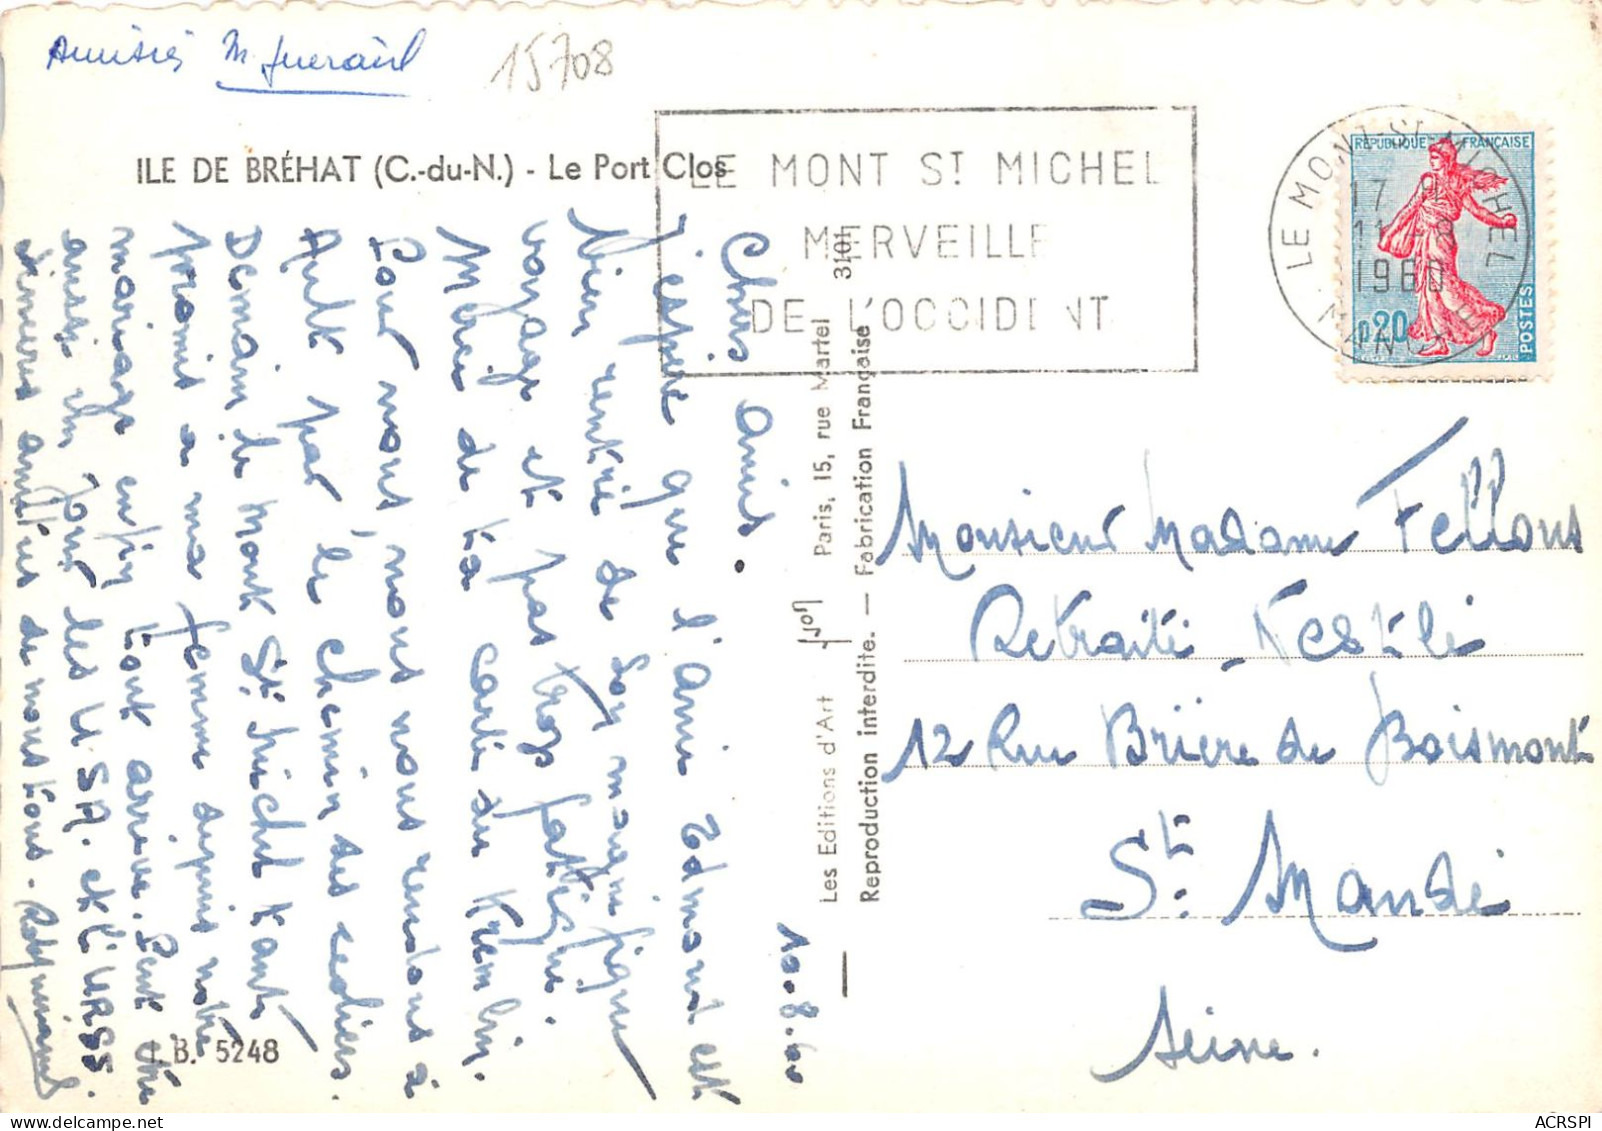 Amitiés M Guerail
15708
ILE DE BRÉHAT (C.-du-N.) - Le Port Clos
LE MONT ST MICHEL
MERVEILLE
DE L'OCCIDENT
LE MONT-ST-MICHEL
17 H
11 - 8
1960
MANCHE
REPUBLIQUE FRANÇAISE
0,20
POSTES
10.8.60
Chers amis.
J'espère que l'ami Edmond est
bien rentré de son magnifique
voyage et pas trop fatigué.
Merci de ta carte du Kremlin.
Pour nous, nous nous rendons à
Ault par le chemin des écoliers.
Demain le Mont St Michel tant
promis a ma femme depuis notre
mariage enfin tout arrive. Peut être
aussi un jour les U.S.A. et l'URSS.
Sincères amitiés de nous tous.
Les Editions d'Art Yvon Paris, 15, rue Martel 3101
Reproduction interdite. — Fabrication Française
I. B. 5248
Monsieur Madame Fellous
Retraité Nestlé
12 Rue Brière de Boismont
St. Mandé
Seine.
ACRSPI